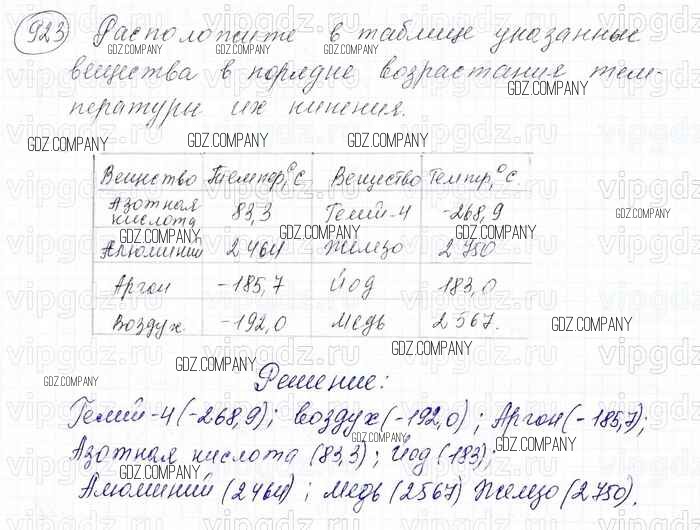 923 Расположите в таблице указанные
вещества в порядке возрастания тем-
пературы их кипения.
Вещество Темпер, °C Вещество Темпер, °C
Азотная кислота 83,3 Гелий-4 -268,9
Алюминий 2464 Железо 2750
Аргон -185,7 Йод 183,0
Воздух -192,0 Медь 2567.
Решение:
Гелий-4 (-268,9); воздух (-192,0); Аргон (-185,7);
Азотная кислота (83,3); Йод (183);
Алюминий (2464); Медь (2567) Железо (2750).
GDZ.COMPANY
vipgdz.ru